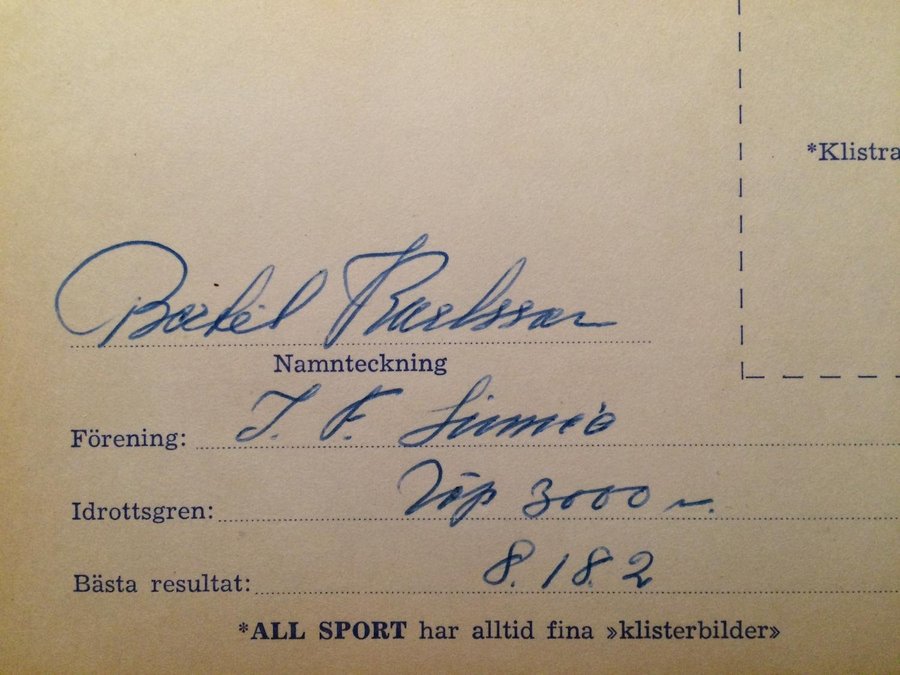 *Klistra
Bertil Karlsson
Namnteckning
Förening: I. F. Linnéa
Idrottsgren: Löp 3000 m.
Bästa resultat: 8.18.2
*ALL SPORT har alltid fina »klisterbilder»